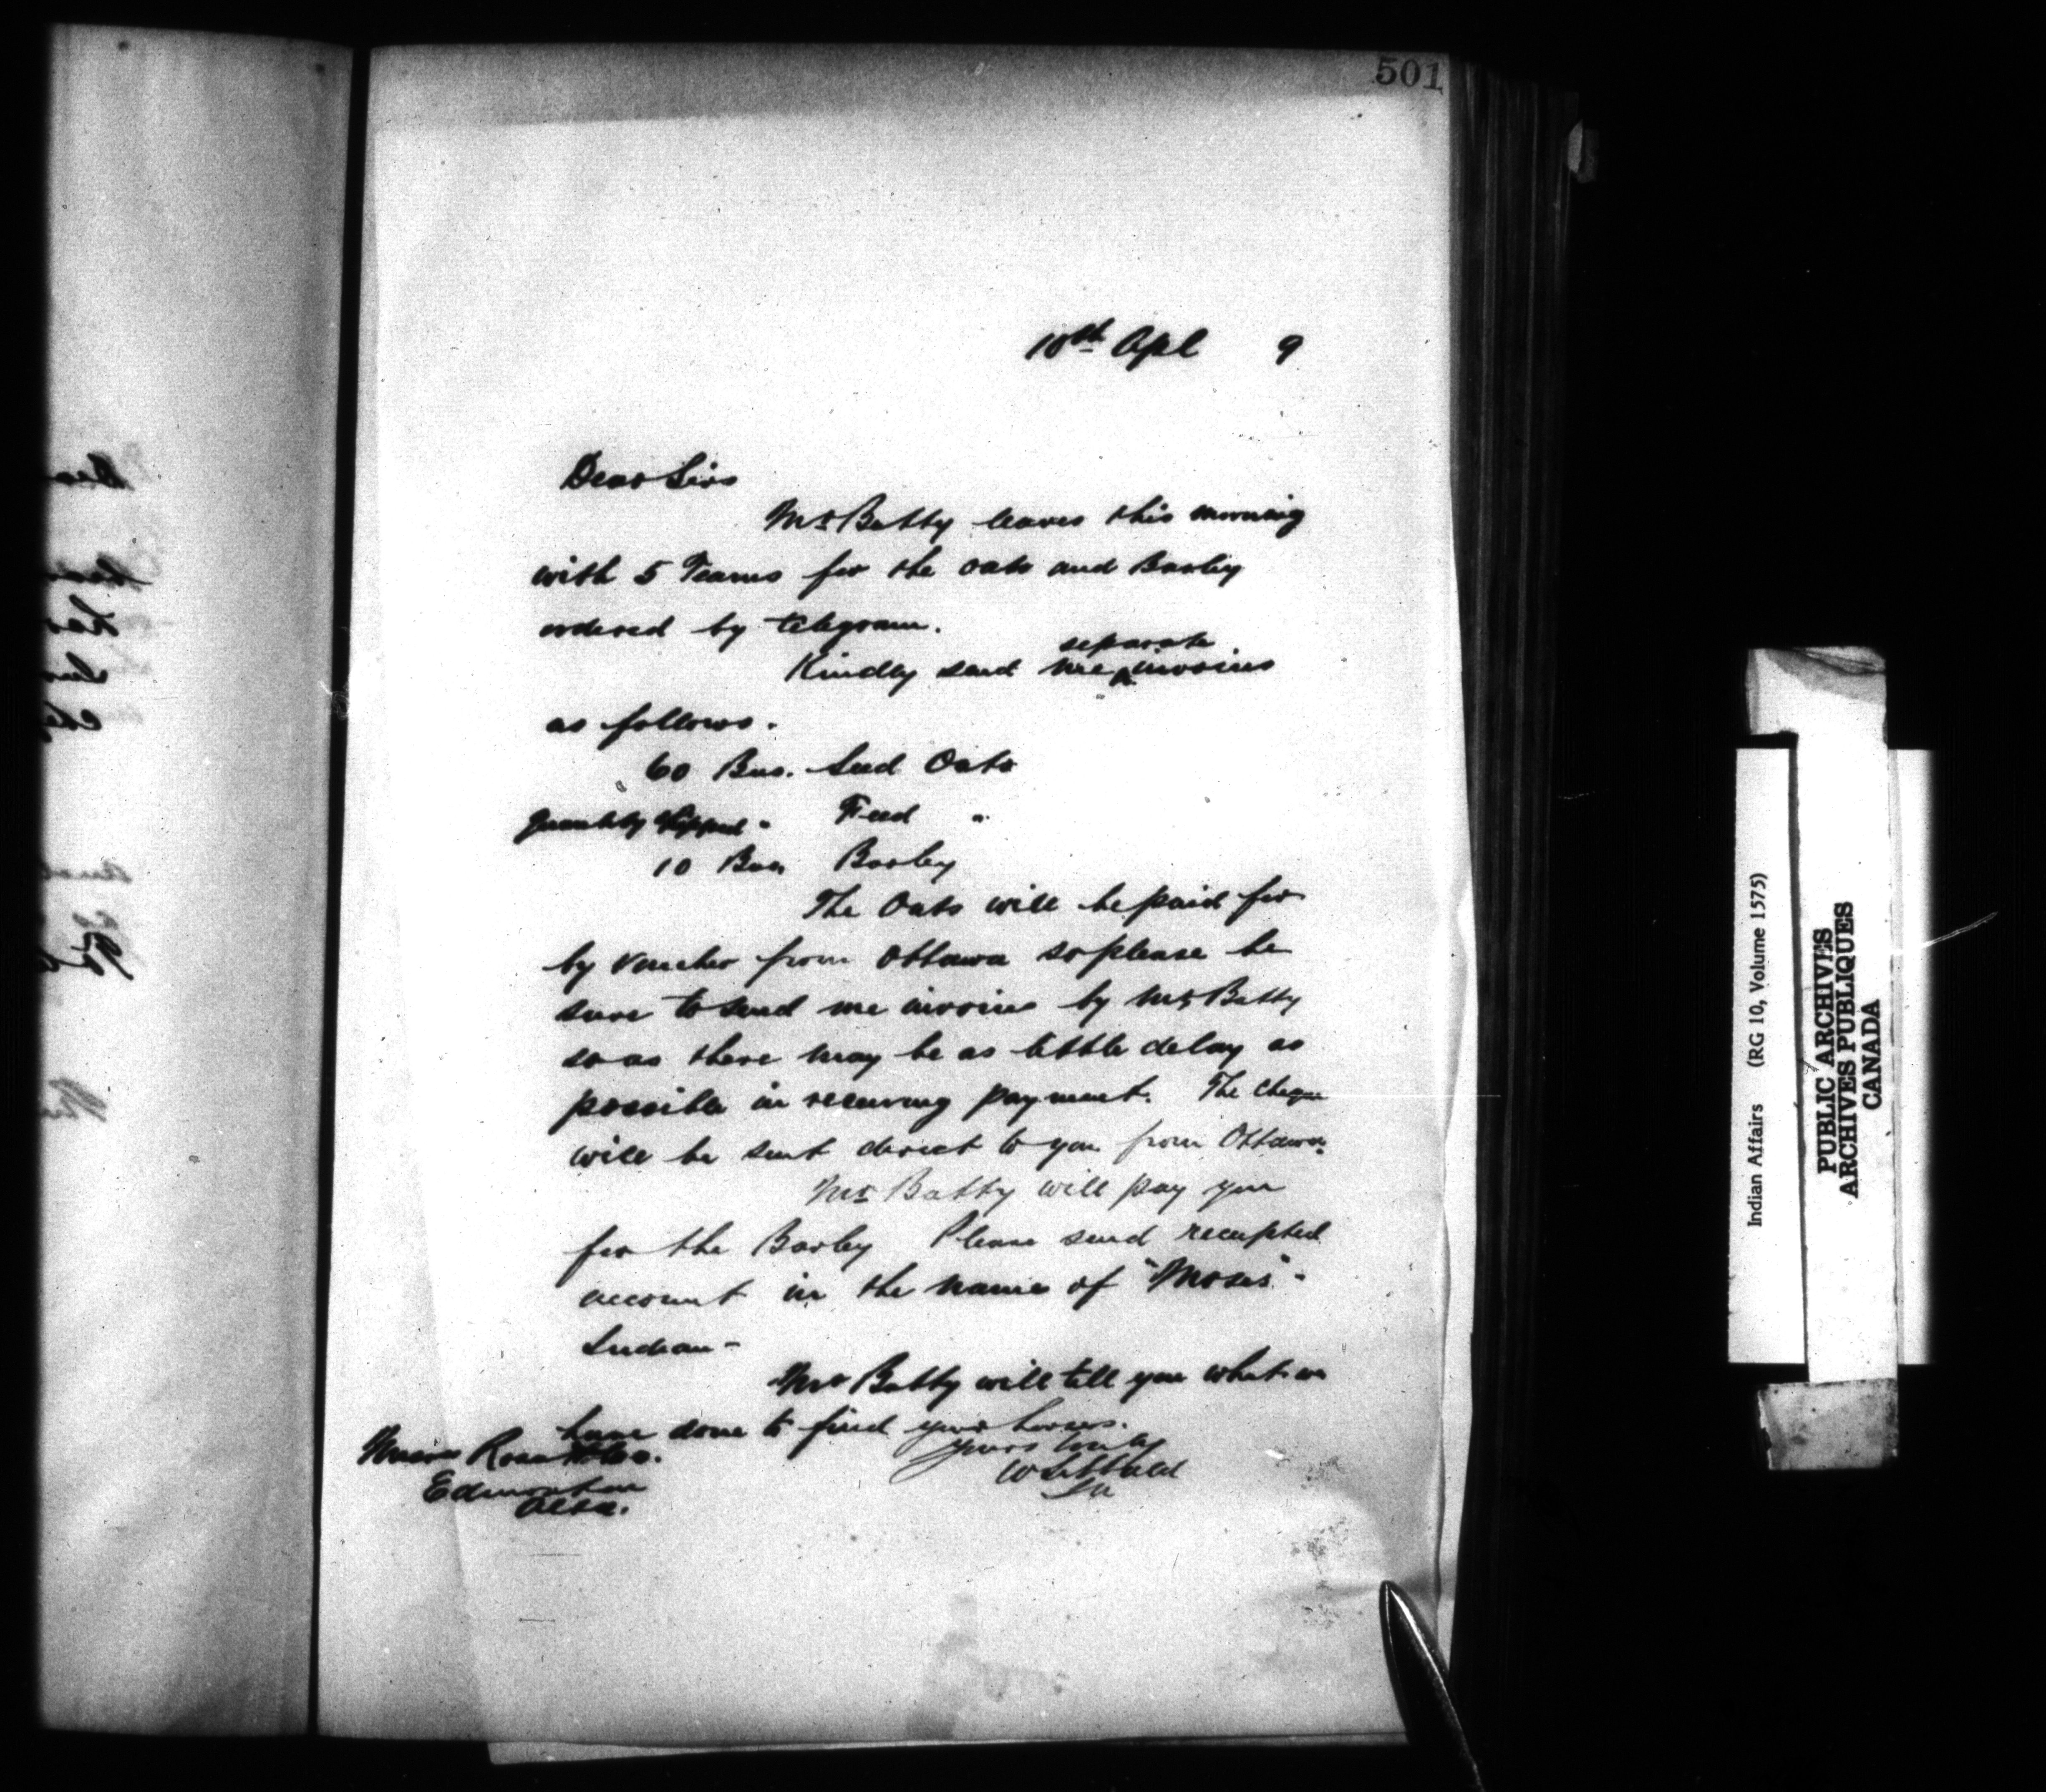 501
10th Apl 9
Dear Sirs
Mr Batty leaves this morning
with 5 Teams for the oats and Barley
ordered by telegram.
separate
Kindly send me invoices
as follows.
60 Bus. Seed Oats
Quantity shipped " Feed "
10 Bus Barley
The Oats will be paid for
by voucher from Ottawa so please be
sure to send me invoices by Mr Batty
so as there may be as little delay as
possible in receiving payment. The cheque
will be sent direct to you from Ottawa.
Mr Batty will pay you
for the Barley Please send receipted
account in the name of "Moses" -
Indian -
Mr Batty will tell you what we
have done to find your horses.
Yours truly
Messrs
Edmonton
Alta.
Indian Affairs (RG 10, Volume 1575)
PUBLIC ARCHIVES
ARCHIVES PUBLIQUES
CANADA